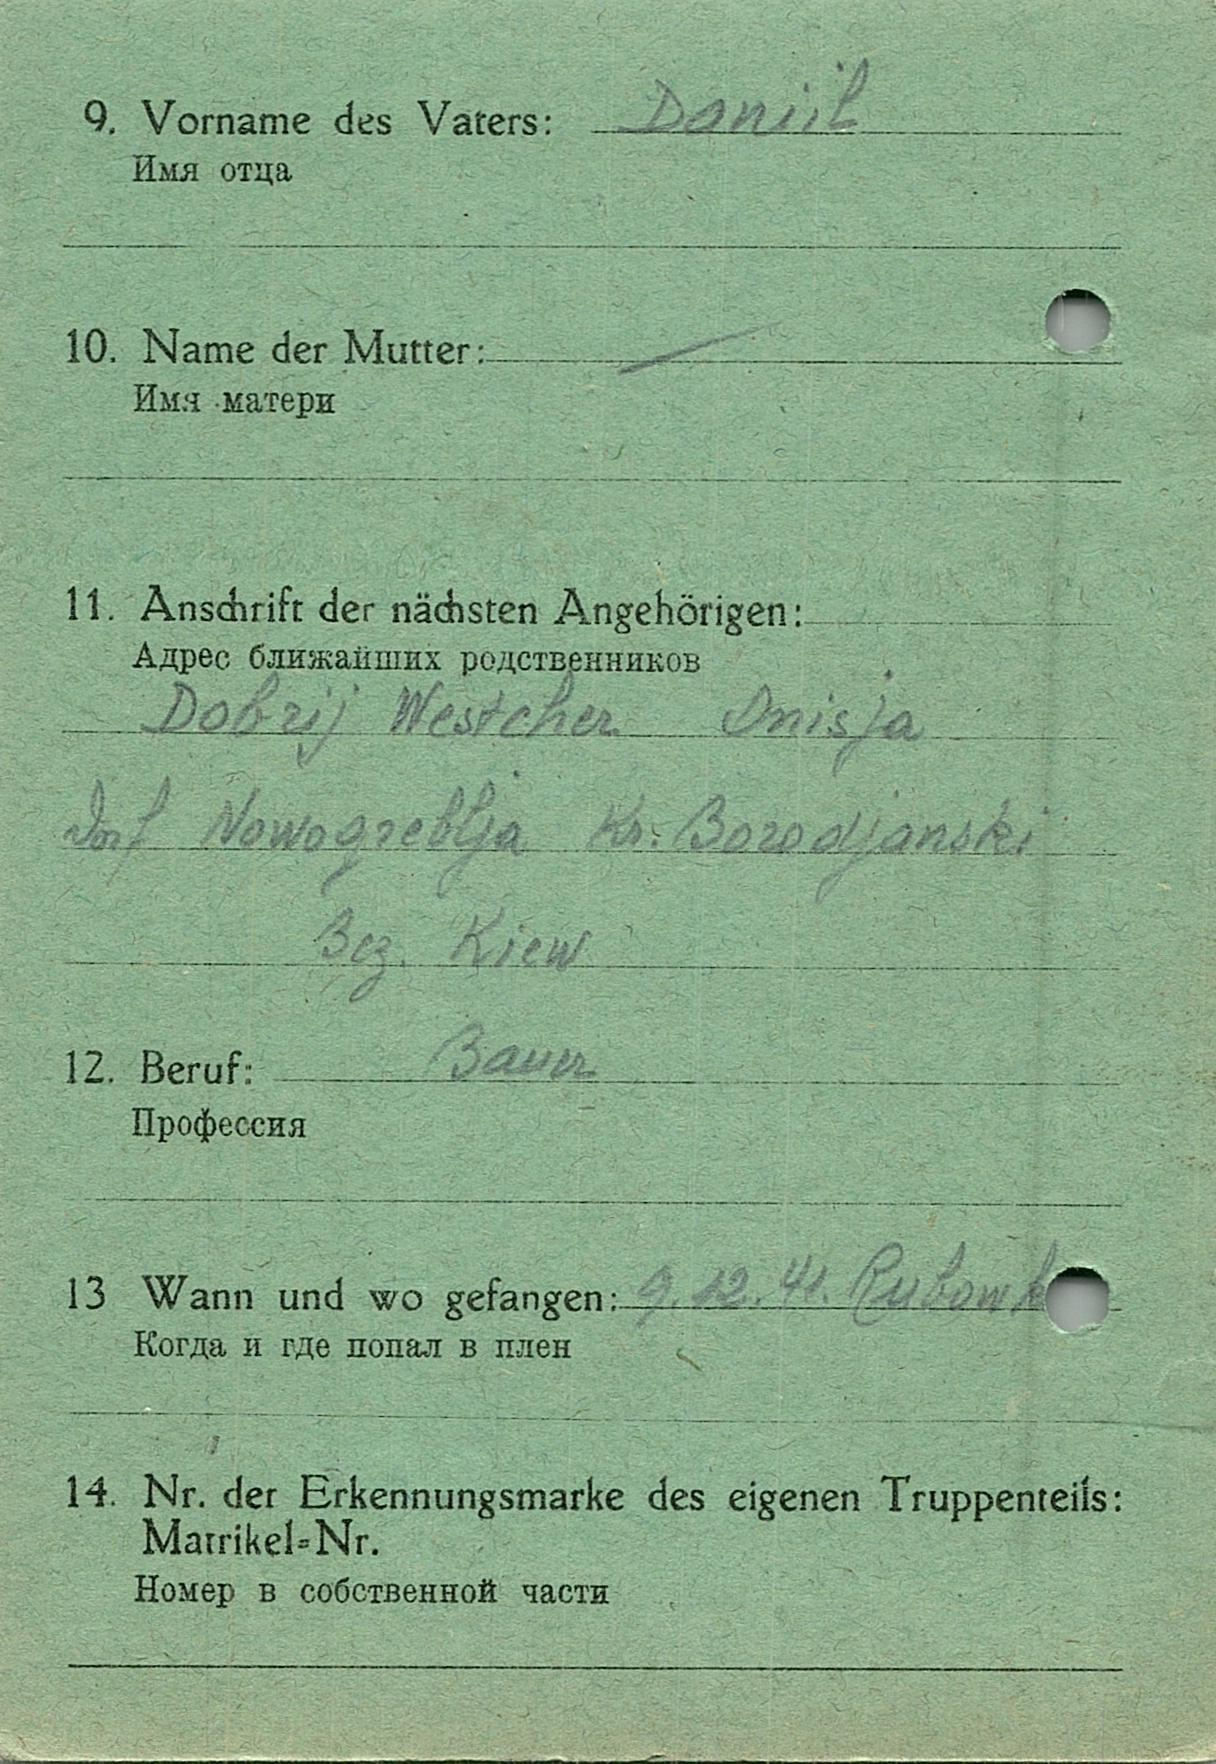 9. Vorname des Vaters: Daniil
Имя отца
10. Name der Mutter: —
Имя матери
11. Anschrift der nächsten Angehörigen:
Адрес ближайших родственников
Dobrij Westcher Onisja
Dorf Nowogreblja Kr. Borodjanski
Bez. Kiew
12. Beruf: Bauer
Профессия
13 Wann und wo gefangen: 9.12.41.
Когда и где попал в плен
14. Nr. der Erkennungsmarke des eigenen Truppenteils:
Matrikel=Nr.
Номер в собственной части